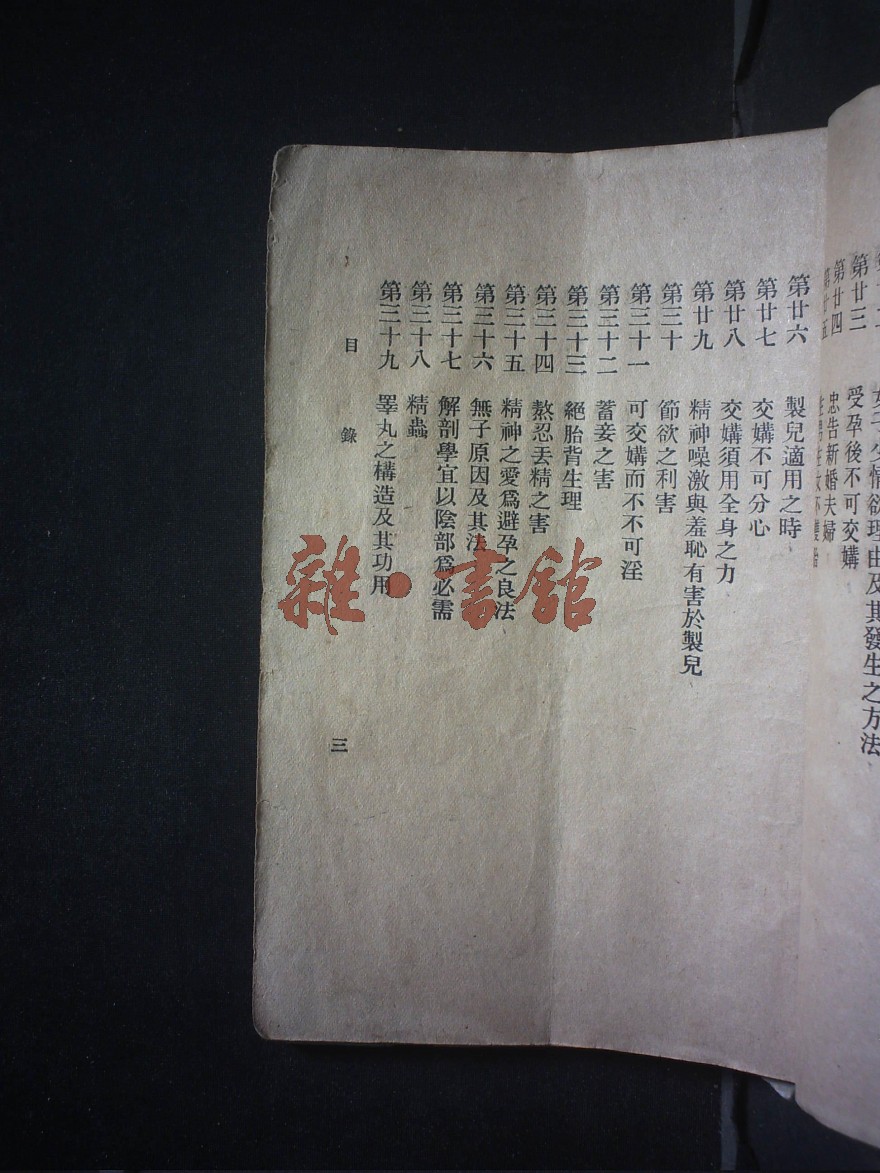 受孕後不可交媾
第廿三
第廿四
忠告新婚夫婦
第廿六 製兒適用之時
第廿七 交媾不可分心
第廿八 交媾須用全身之力
第廿九 精神噪激與羞恥有害於製兒
第三十 節欲之利害
第三十一 可交媾而不不可淫
第三十二 蓄妾之害
第三十三 絕胎背生理
第三十四 熬忍丟精之害
第三十五 精神之愛爲避孕之良法
第三十六 無子原因及其法
第三十七 解剖學宜以陰部爲必需
第三十八 精蟲
第三十九 睪丸之構造及其功用
目錄 三
雜·書館